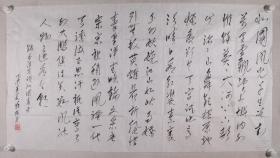 北國風光千里冰封
萬里雪飄望長城內外
惟餘莽莽大河上下
頓失滔滔山舞銀蛇原馳
蠟象欲與天公試比高須
晴日看紅裝素裹
分外妖嬈江山如此多嬌
引無數英雄競折腰
惜秦皇漢武略輸文采
唐宗宋祖稍遜風騷一代
天驕成吉思汗只識彎弓
射大雕俱往矣數風流
人物還看今朝